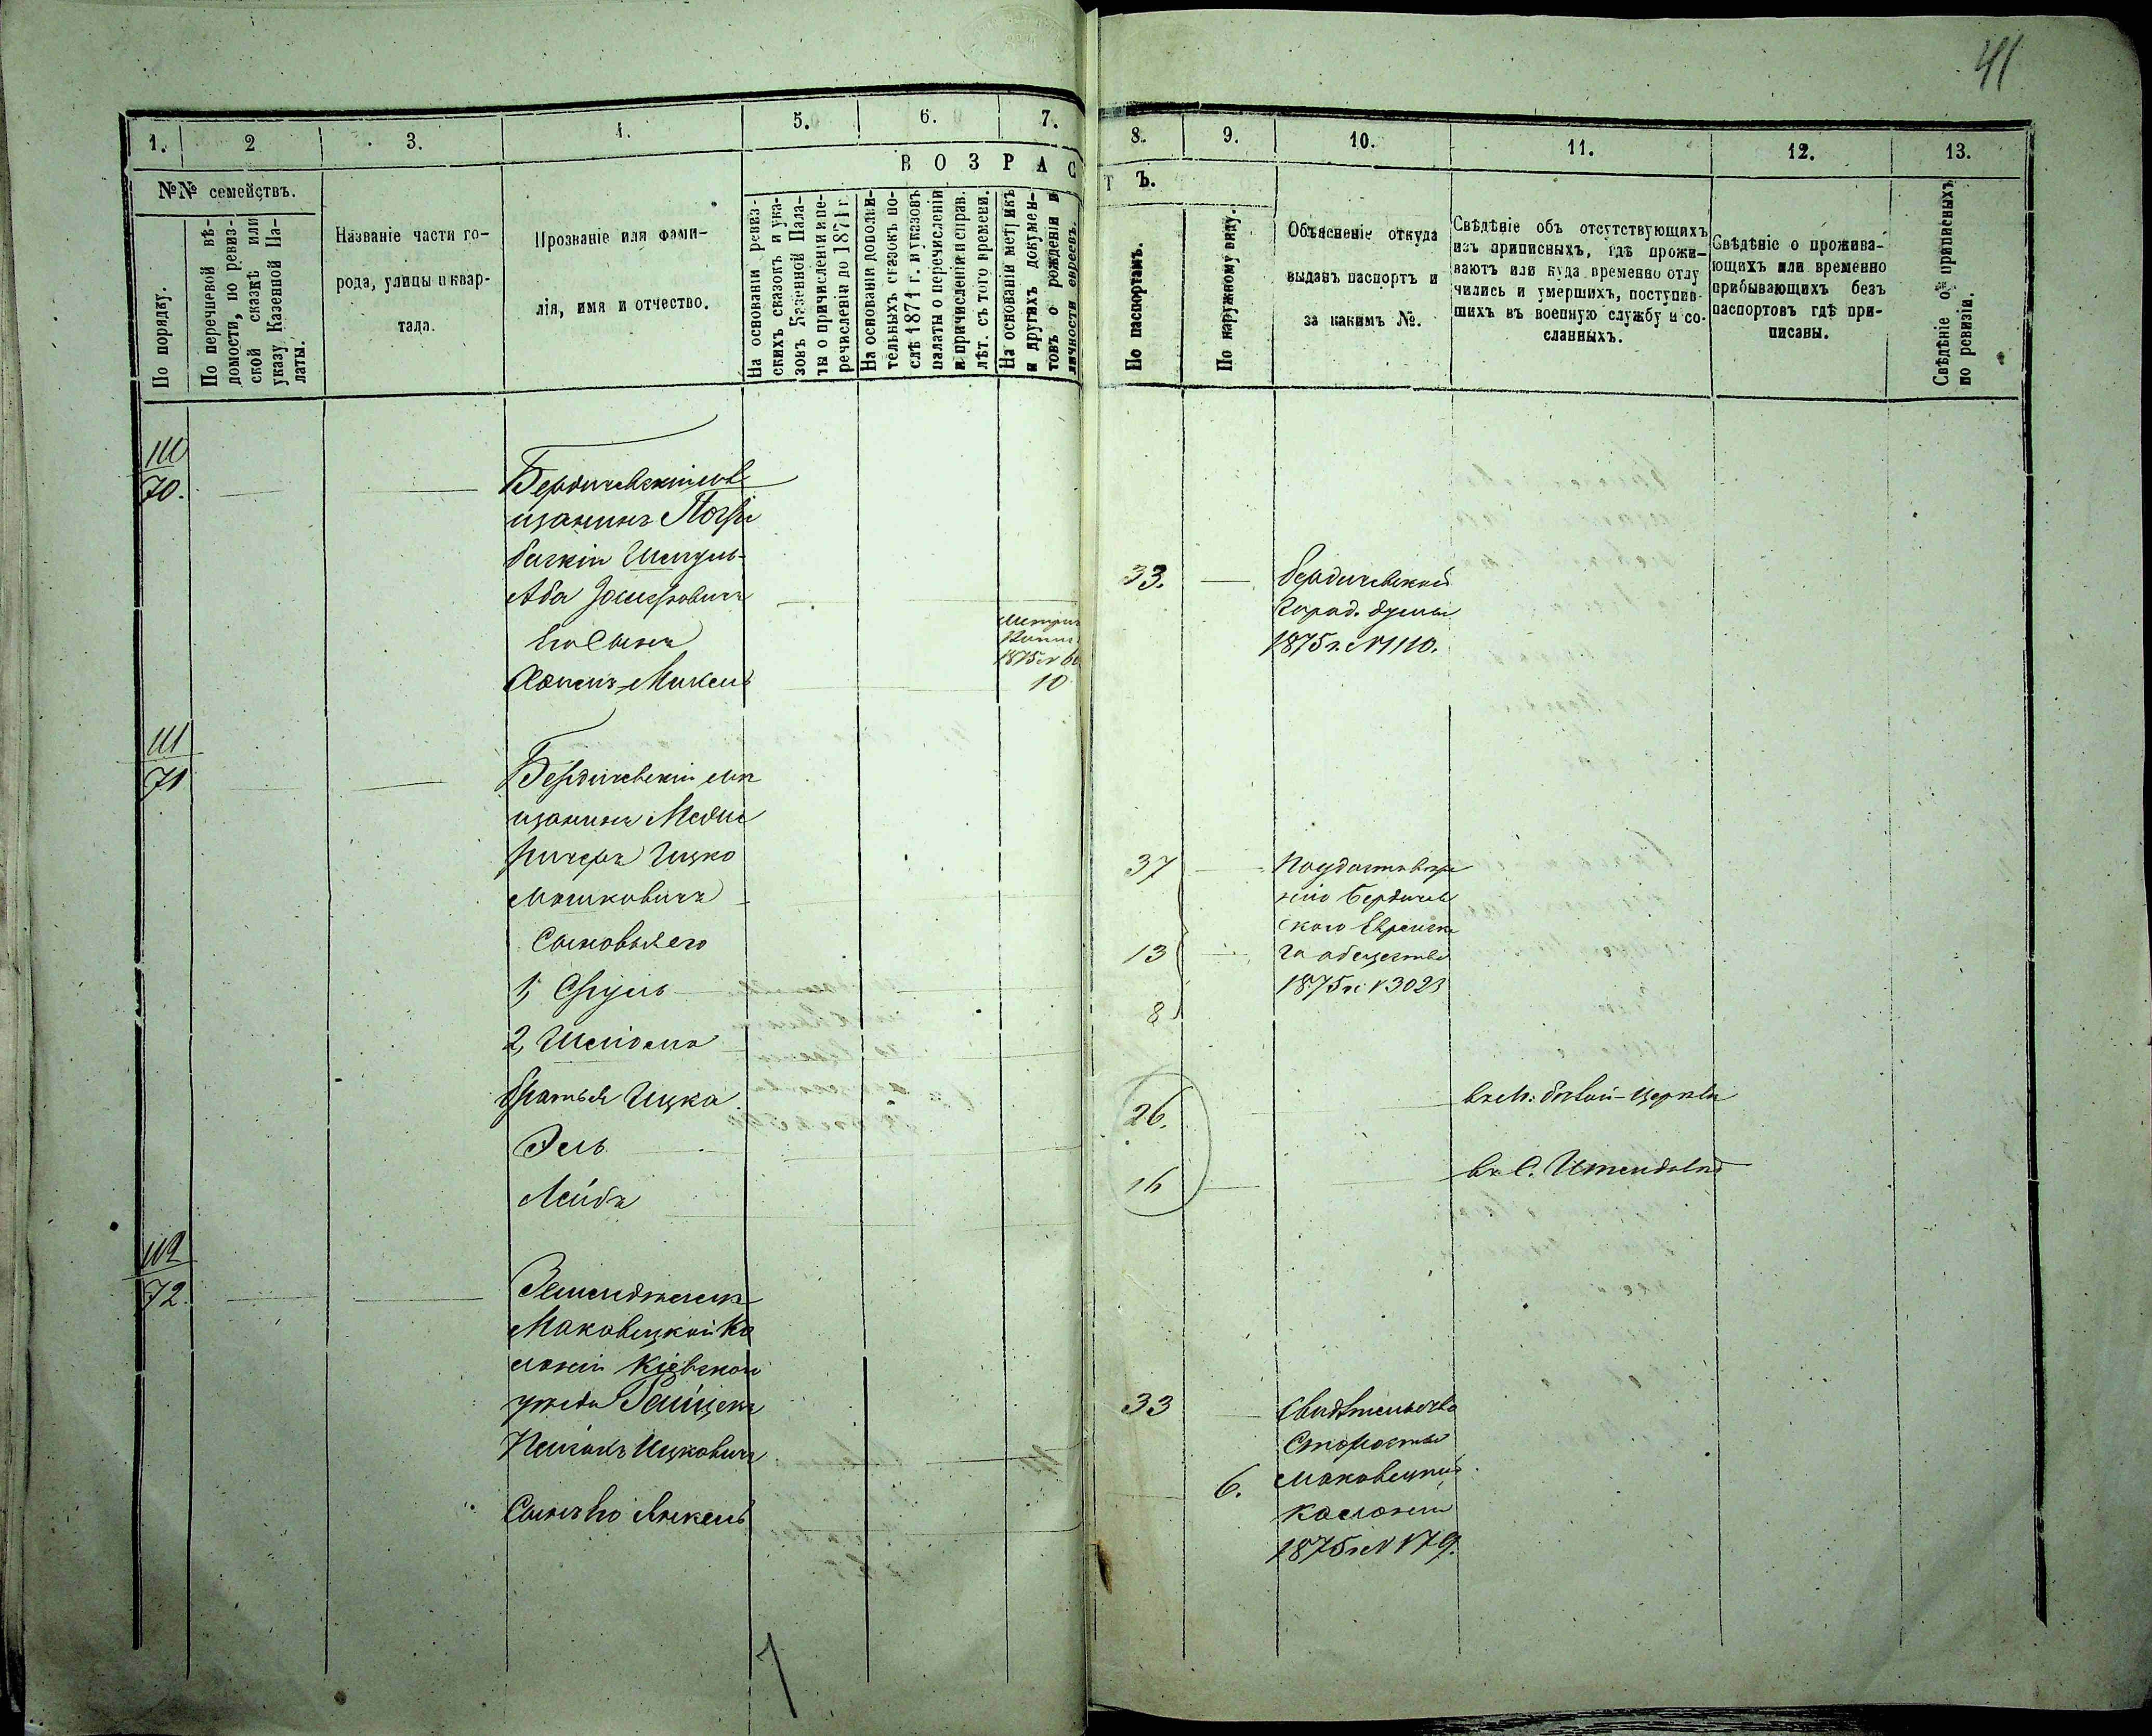 41
1. 2 3. 4. 5. 6. 7.
8. 9. 10. 11. 12. 13.
№№ семействъ.
В О З Р А С
Т Ъ.
По порядку.
По перечневой вѣ-
домости, по ревиз-
ской сказкѣ или
указу Казенной Па-
латы.
Названіе части го-
рода, улицы и квар-
тала.
Прозваніе или фами-
лія, имя и отчество.
На основаніи ревиз-
скихъ сказокъ и ука-
зовъ Казенной Пала-
ты о причисленіи и пе-
речисленіи до 1871 г.
На основаніи дополни-
тельныхъ сказокъ по-
слѣ 1871 г. и указовъ
палаты о перечисленіи
и причисленіи и справ.
лѣт. съ того времени.
На основаніи метрикъ
и другихъ докумен-
товъ о рожденіи и
личности евреевъ.
По паспортамъ.
По наружному виду.
Объясненіе откуда
выданъ паспортъ и
за какимъ №.
Свѣдѣніе объ отсутствующихъ
изъ приписныхъ, гдѣ прожи-
ваютъ или куда временно отлу
чились и умершихъ, поступив-
шихъ въ военную службу и со-
сланныхъ.
Свѣдѣніе о прожива-
ющихъ или временно
прибывающихъ безъ
паспортовъ гдѣ при-
писаны.
Свѣдѣніе о приписныхъ
по ревизіи.
110
70.
Бердичевскій мѣ
щанинъ
Аба
Его Сынъ
1875
10
33.
Бердичевской
Город. Думы
1875 г. № 1110.
111
71
Бердичевскій мѣ
щанинъ
Ицко
Мошковичъ
Сыновья его
1, Сруль
2,
братья Ицка
Эль
Лейбъ
37
13
8
26.
16
Бердичев
ского Еврейска
го общества
1875 г. № 3023
въ м: Бѣлой-Церкви
въ С.
112
72.
Земледѣлецъ
Маковецкой Ко
лоніи Кіевскаго
уѣзда
Ицковичъ
Сынъ его Янкель
33
6.
Свидѣтельство
Старосты
Маковецкой
колоніи
1875 г. № 179.